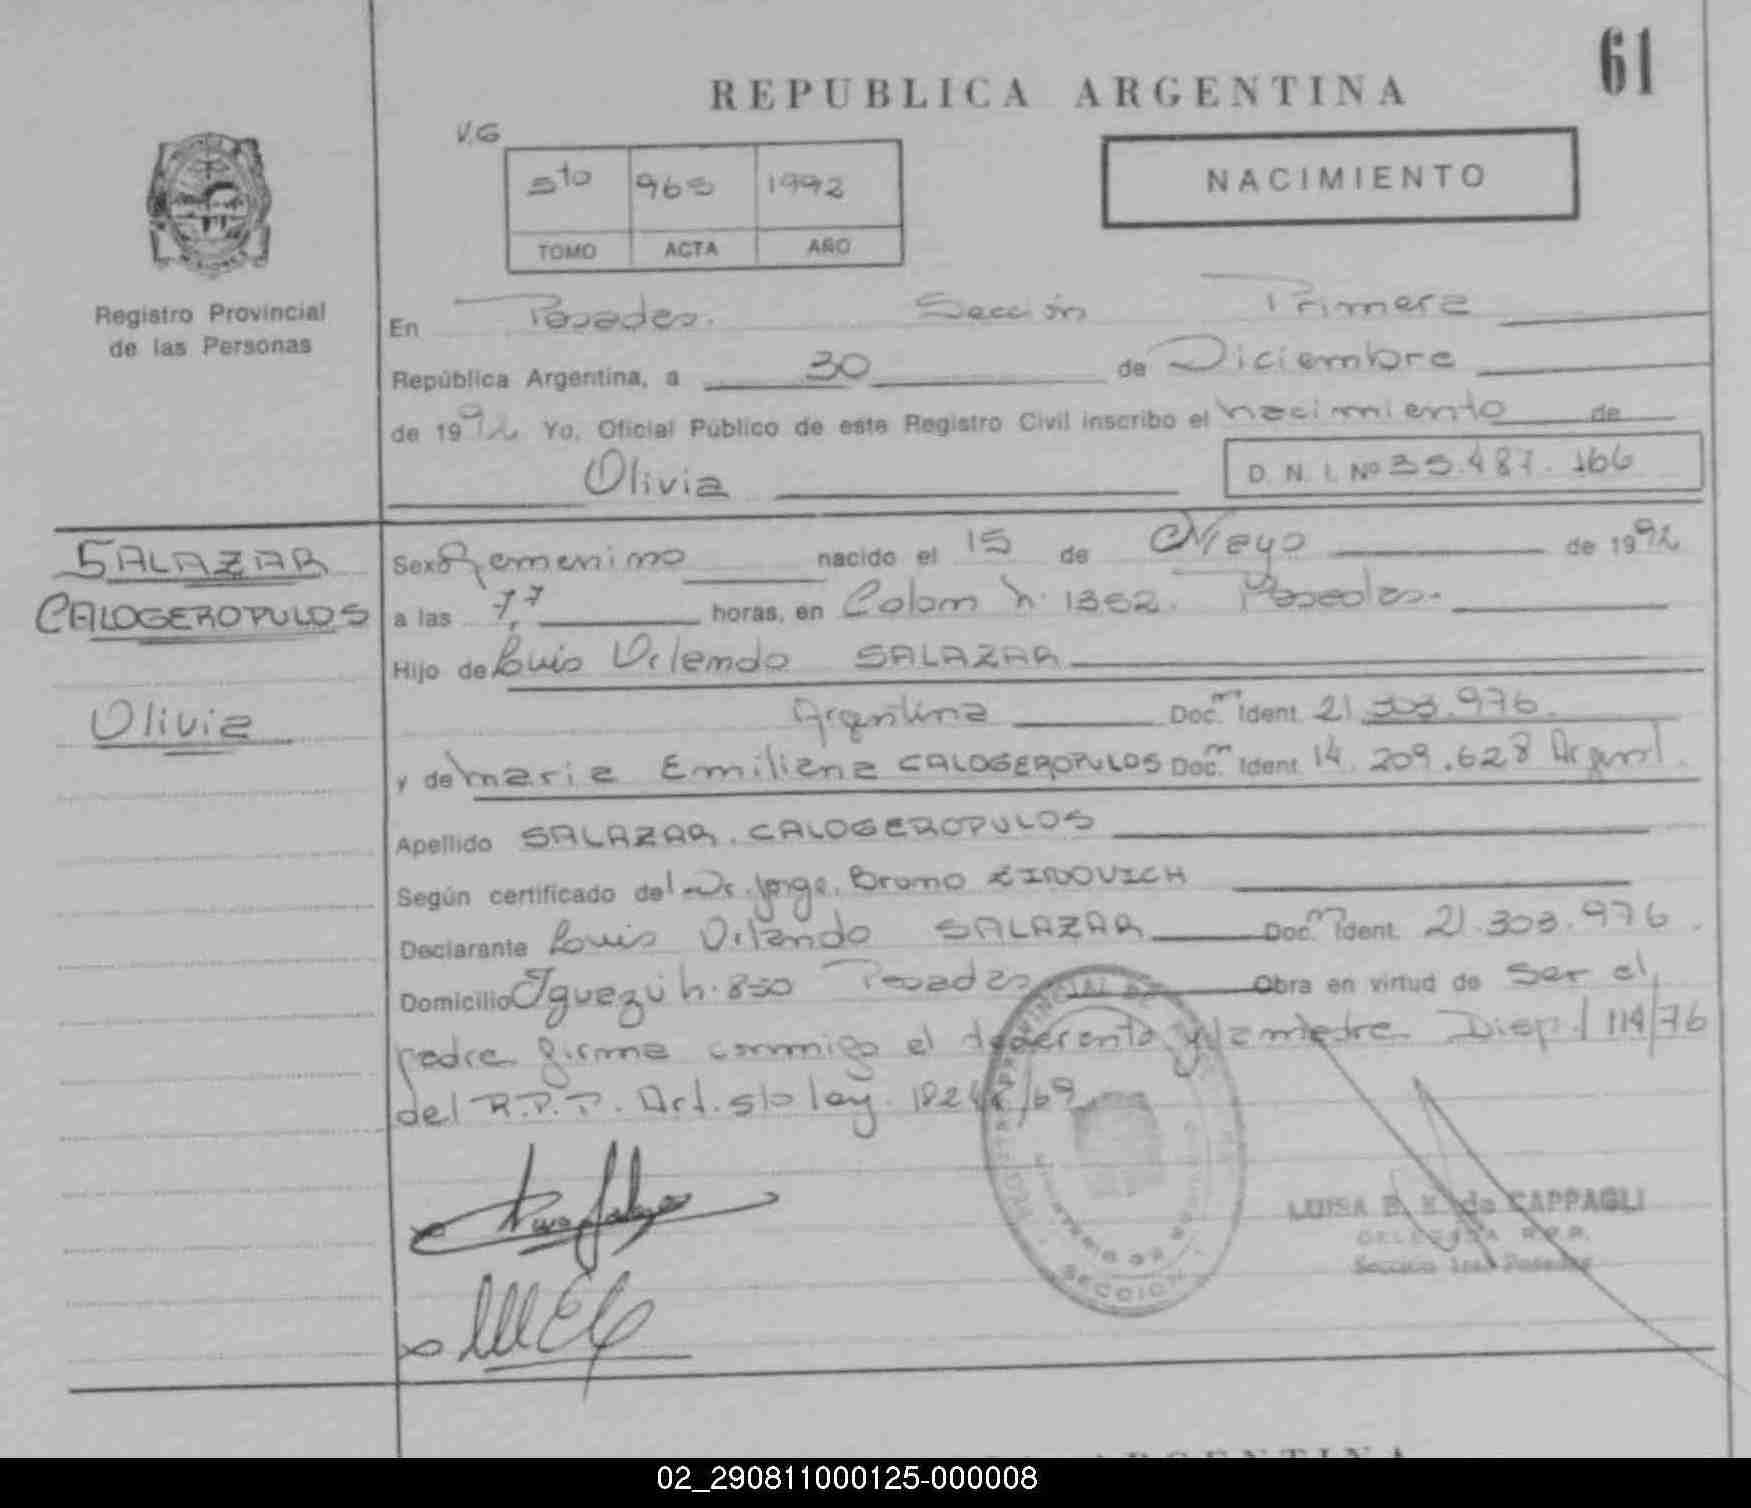 61
REPUBLICA ARGENTINA
V.G
5to 965 1992
TOMO ACTA AÑO
NACIMIENTO
Registro Provincial
de las Personas
En Posadas. Sección Primera
República Argentina, a 30 de Diciembre
de 1992 Yo, Oficial Público de este Registro Civil inscribo el nacimiento de
Olivia D. N. I. Nº 35.487.166
SALAZAR
CALOGEROPULOS
Olivia
Sexo Femenino nacido el 15 de Mayo de 1992
a las horas, en Colon n. 1352. Posadas.
Hijo de Luis Orlando SALAZAR
Argentina Doc. Ident. 21.303.976.
y de Maria Emiliana CALOGEROPULOS Doc. Ident. 14.209.628 Argent.
Apellido SALAZAR. CALOGEROPULOS
Según certificado del Dr. Jorge. Bruno
Declarante Luis Orlando SALAZAR Doc. Ident. 21.303.976.
Domicilio Iguazú n. 850 Posadas Obra en virtud de Ser el
padre firma conmigo el declarante y la madre Disp. 114/76
del R.P.P. Art. 5to ley. /69
SECCION
LUISA B. K. de CAPPAGLI
DELEGADA R.P.P.
Sección 1ra. Posadas
ARGENTINA
02_290811000125-000008